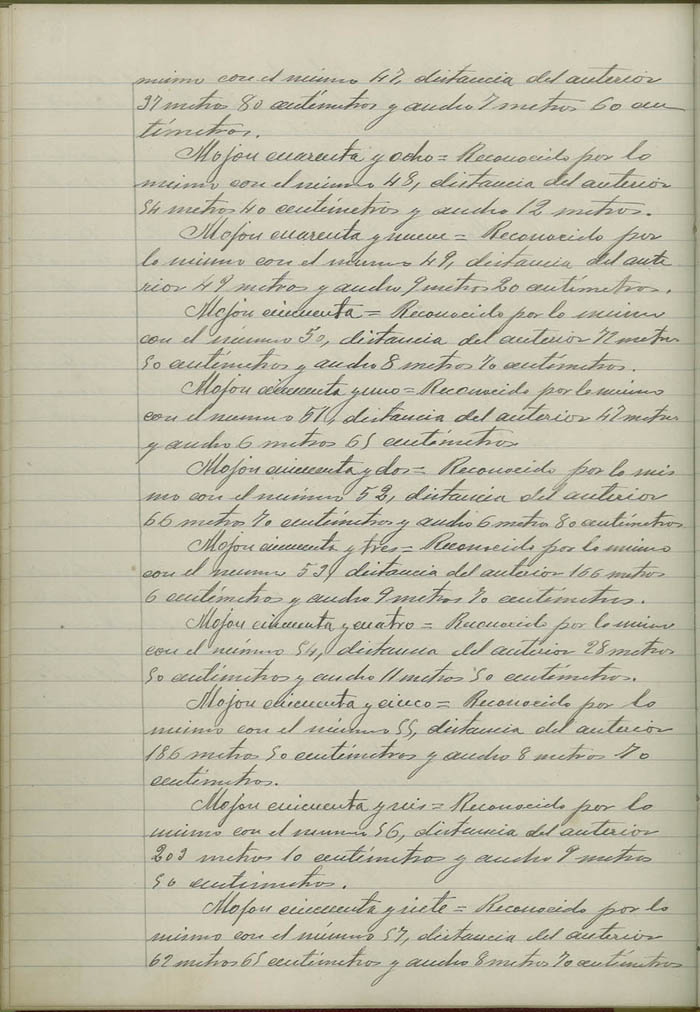 mismo con el número 47, distancia del anterior
37 metros 80 centímetros y ancho 7 metros 60 cen
tímetros.
Mojon cuarenta y ocho = Reconocido por lo
mismo con el número 48, distancia del anterior
54 metros 40 centímetros y ancho 12 metros.
Mojon cuarenta y nueve = Reconocido por
lo mismo con el número 49, distancia del ante
rior 49 metros y ancho 9 metros 20 centímetros.
Mojon cincuenta = Reconocido por lo mismo
con el número 50, distancia del anterior 72 metros
50 centímetros y ancho 8 metros 70 centímetros.
Mojon cincuenta y uno = Reconocido por lo mismo
con el número 51, distancia del anterior 47 metros
y ancho 6 metros 65 centímetros
Mojon cincuenta y dos = Reconocido por lo mis
mo con el número 52, distancia del anterior
66 metros 70 centímetros y ancho 6 metros 80 centímetros
Mojon cincuenta y tres = Reconocido por lo mismo
con el número 53, distancia del anterior 166 metros
6 centímetros y ancho 9 metros 70 centímetros.
Mojon cincuenta y cuatro = Reconocido por lo mismo
con el número 54, distancia del anterior 28 metros
50 centímetros y ancho 11 metros 50 centímetros.
Mojon cincuenta y cinco = Reconocido por lo
mismo con el número 55, distancia del anterior
186 metros 50 centímetros y ancho 8 metros 70
centímetros.
Mojon cincuenta y seis = Reconocido por lo
mismo con el número 56, distancia del anterior
203 metros 10 centímetros y ancho 9 metros
50 centímetros.
Mojon cincuenta y siete = Reconocido por lo
mismo con el número 57, distancia del anterior
62 metros 65 centímetros y ancho 8 metros 70 centímetros